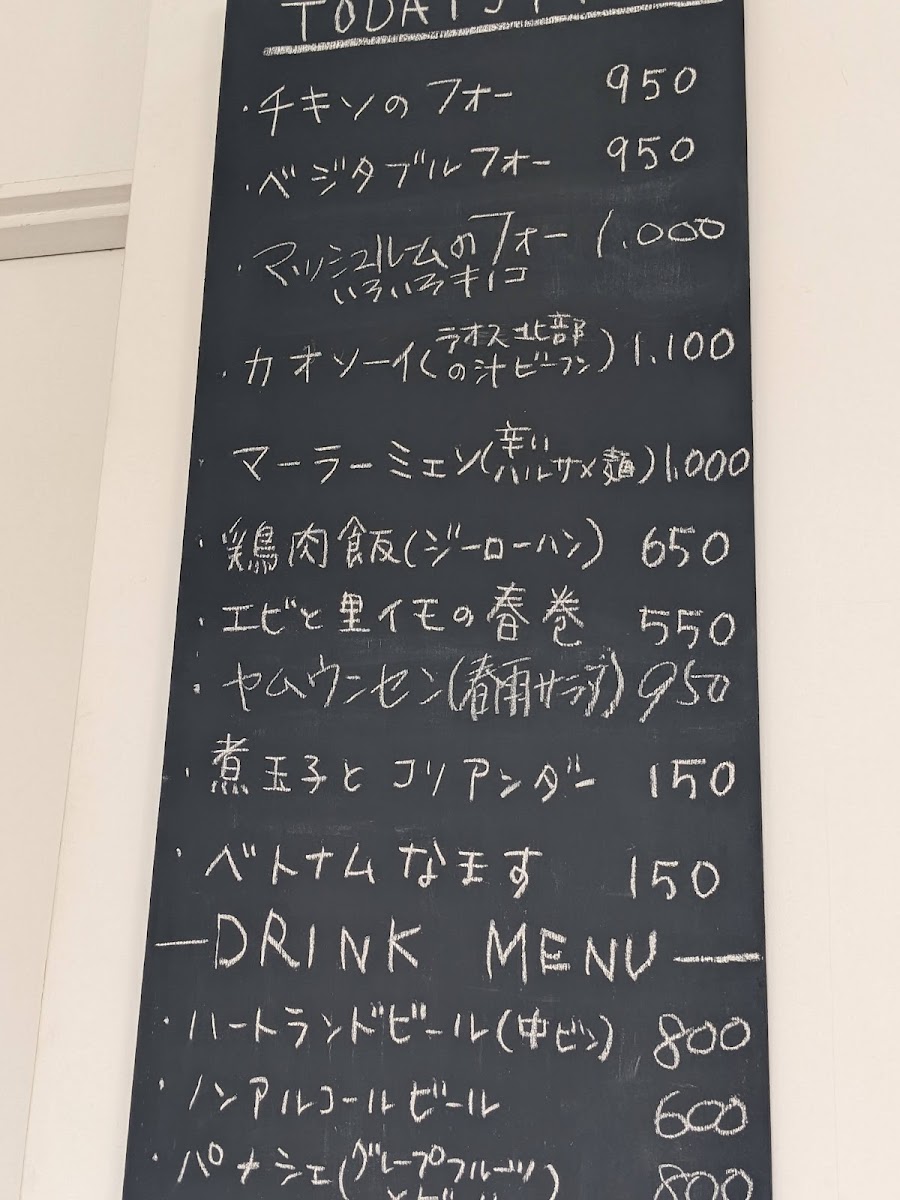 TODAY'S
・チキンのフォー 950
・ベジタブルフォー 950
・マッシュルームのフォー 1.000
いろいろキノコ
・カオソーイ(ラオス北部の汁ビーフン) 1.100
・マーラーミェン(辛いハルサメ麺) 1.000
・鶏肉飯(ジーローハン) 650
・エビと里イモの春巻 550
・ヤムウンセン(春雨サラダ) 950
・煮玉子とコリアンダー 150
・ベトナムなます 150
—DRINK MENU—
・ハートランドビール(中ビン) 800
・ノンアルコールビール 600
・パナシェ(グレープフルーツ 800
とビール)